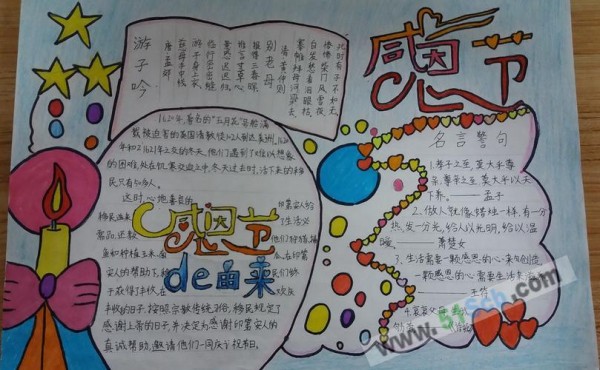 游子吟
唐 孟郊
慈母手中线
游子身上衣
临行密密缝
意恐迟迟归
谁言寸草心
报得三春晖
别老母
清 黄仲则
搴帷拜母河梁去
白发愁看泪眼枯
惨惨柴门风雪夜
此时有子不如无
感恩节
1620年,著名的"五月花"号船满
载被迫害的英国清教徒102人到达美洲。1620
年和1621年之交的冬天,他们遇到了难以想象
的困难,处在饥寒交迫之中,冬天过去时,活下来的移
民只有50多人。
这时,心地善良的印第安人给
移民送来了生活必
需品,还教
感恩节
de由来
丰收的日子,按照宗教传统习俗,移民规定了
感谢上帝的日子,并决定为感谢印第安人的
真诚帮助,邀请他们一同庆祝节日。
名言警句
1.孝子之至,莫大乎尊
亲;尊亲之至,莫大乎以天
下养。——孟子
2.做人就像蜡烛一样,有一分
热,发一分光,给人以光明,给以温
暖。——萧楚女
3.生活需要一颗感恩的心来创造,
一颗感恩的心需要生活来滋养。
——王符
4.
www.51scb.com